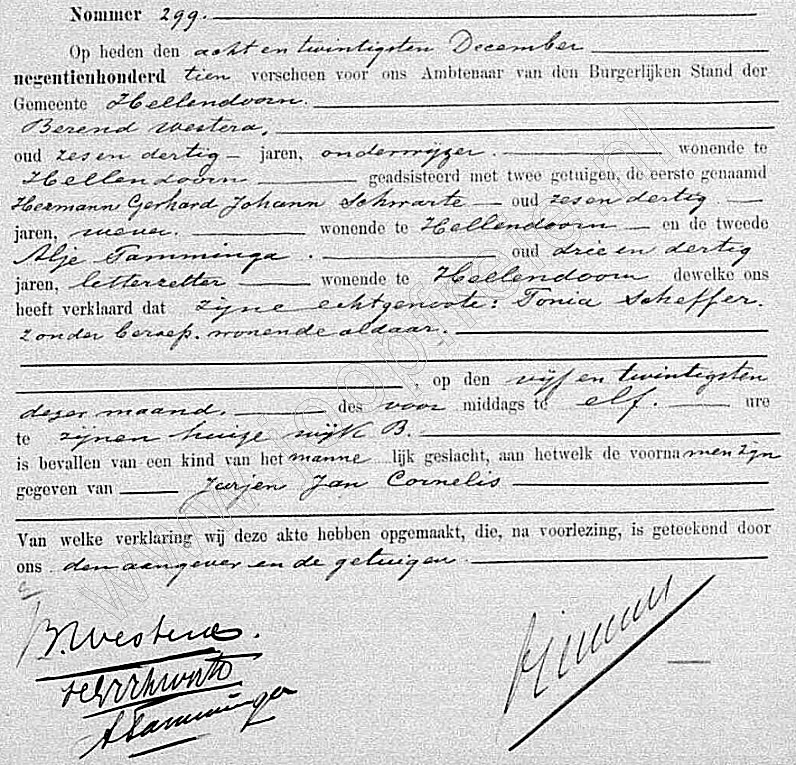 Nommer 299.
Op heden den acht en twintigsten December
negentienhonderd tien verscheen voor ons Ambtenaar van den Burgerlijken Stand der
Gemeente Hellendoorn.
Berend Westera,
oud zes en dertig jaren, onderwijzer. wonende te
Hellendoorn geadsisteerd met twee getuigen, de eerste genaamd
Hermann Gerhard Johann Schwarte oud zes en dertig
jaren, wever. wonende te Hellendoorn en de tweede
Alje Tamminga. oud drie en dertig
jaren, letterzetter wonende te Hellendoorn dewelke ons
heeft verklaard dat zijne echtgenoote: Tonia Scheffer.
zonder beroep. wonende aldaar.
, op den vijf en twintigsten
dezer maand. des voor middags te elf. ure
te zijnen huize wijk B.
is bevallen van een kind van het manne lijk geslacht, aan hetwelk de voorna men zijn
gegeven van Jurjen Jan Cornelis
Van welke verklaring wij deze akte hebben opgemaakt, die, na voorlezing, is geteekend door
ons den aangever en de getuigen.
B. Westera.
HGJSchwarte
ATamminga